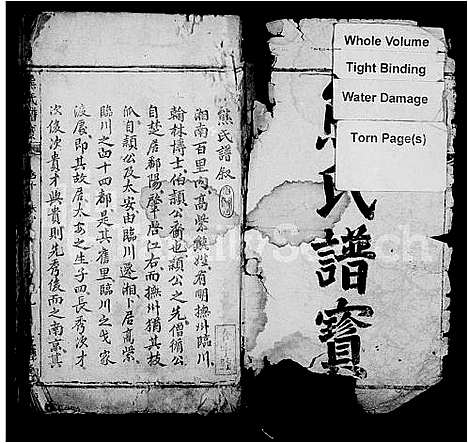 Whole Volume
Tight Binding
Water Damage
Torn Page(s)
氏譜寶
熊氏譜叙
湘南百里內高紫熊姓有明撫州臨川
翰林博士伯顓公裔也顓公之先僧脩公
自楚居鄱陽肇啓江右而撫州猶其枝
派自顓公及太安由臨川遷湘卜居高紫
臨川之四十四都是其舊里臨川之戈家
渡屢即其故居太安之生子四長秀次才
次俊次貴才與貴則先秀後而之南京其